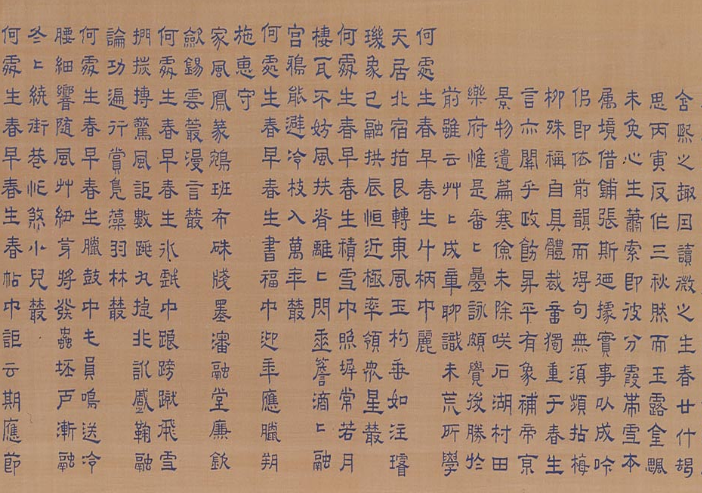 含熙之趣因讀微之生春廿什朅
思丙寅反作三秋然而玉露金飈
未免心生蕭索即彼分霞帶雪本
屬境借鋪張斯迺據實事以成吟
侶即依前韻而得句無須頻拈梅
柳殊稱自具體裁重獨重于春生
言亦關乎政飭昇平有象補帝京
景物遺篇寒儉未除咲石湖村田
樂府惟是番二疊詠頗覺後勝於
前雖云艸二成章聊識未荒所學
何處生春早春生斗柄中麗
天居北宿拍艮轉東風玉杓垂如注璿
璣象已融拱辰恒近極率領眾星叢
何處生春早春生積雪中照墀常若月
棲瓦不妨風扶脊離二閃垂簷滴二融
宮鴉能避冷枝入萬年叢
何處生春早春生書福中迎年應臘朔
施惠守
家風鳳篆鵷班布硃牋墨瀋融堂廉欽
歛錫雲叢漫言叢
何處生春早春生氷戲中踉蹡蹴飛雪
摶驚風詎數跳丸捷非訓蹙鞠融
論功遍行賞鳧藻羽林叢
何處生春早春生臘鼓中員鳴送冷
腰細響隨風艸紐芽將發蟲坯戶漸融
冬二統街巷忙煞小兒叢
何處生春早春生春帖中詎云期應節